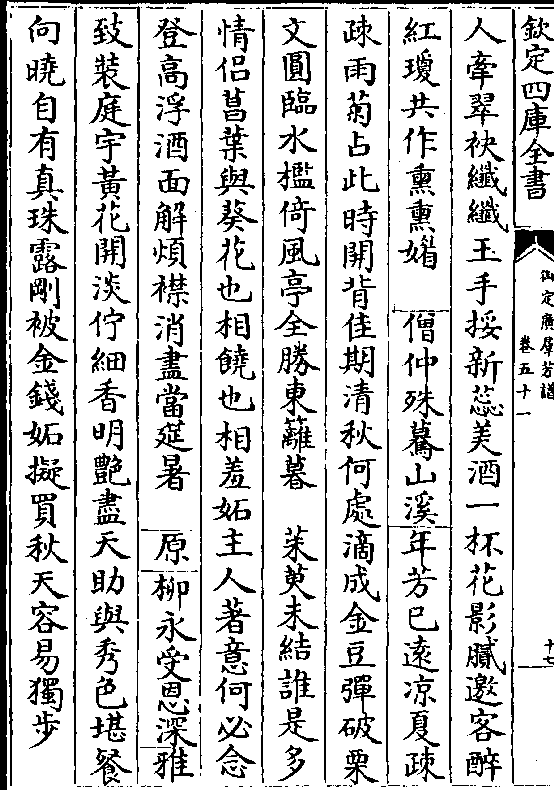 欽定四庫全書
御定廣群芳譜
卷五十一
十七
人牽翠袂纖纖玉手挼新蕊美酒一杯花影膩邀客醉
紅瓊共作熏熏媚 僧仲殊驀山溪年芳已遠凉夏疎
疎雨菊占此時開背佳期清秋何處滴成金豆彈破栗
文圓臨水檻倚風亭全勝東籬暮 茱萸未結誰是多
情侣菖葉與葵花也相饒也相羞妬主人著意何必念
登高浮酒面解煩襟消盡當筵暑 原柳永受恩深雅
致裝庭宇黃花開淡佇細香明艷盡天助與秀色堪餐
向曉自有真珠露剛被金錢妬擬買秋天容易獨步